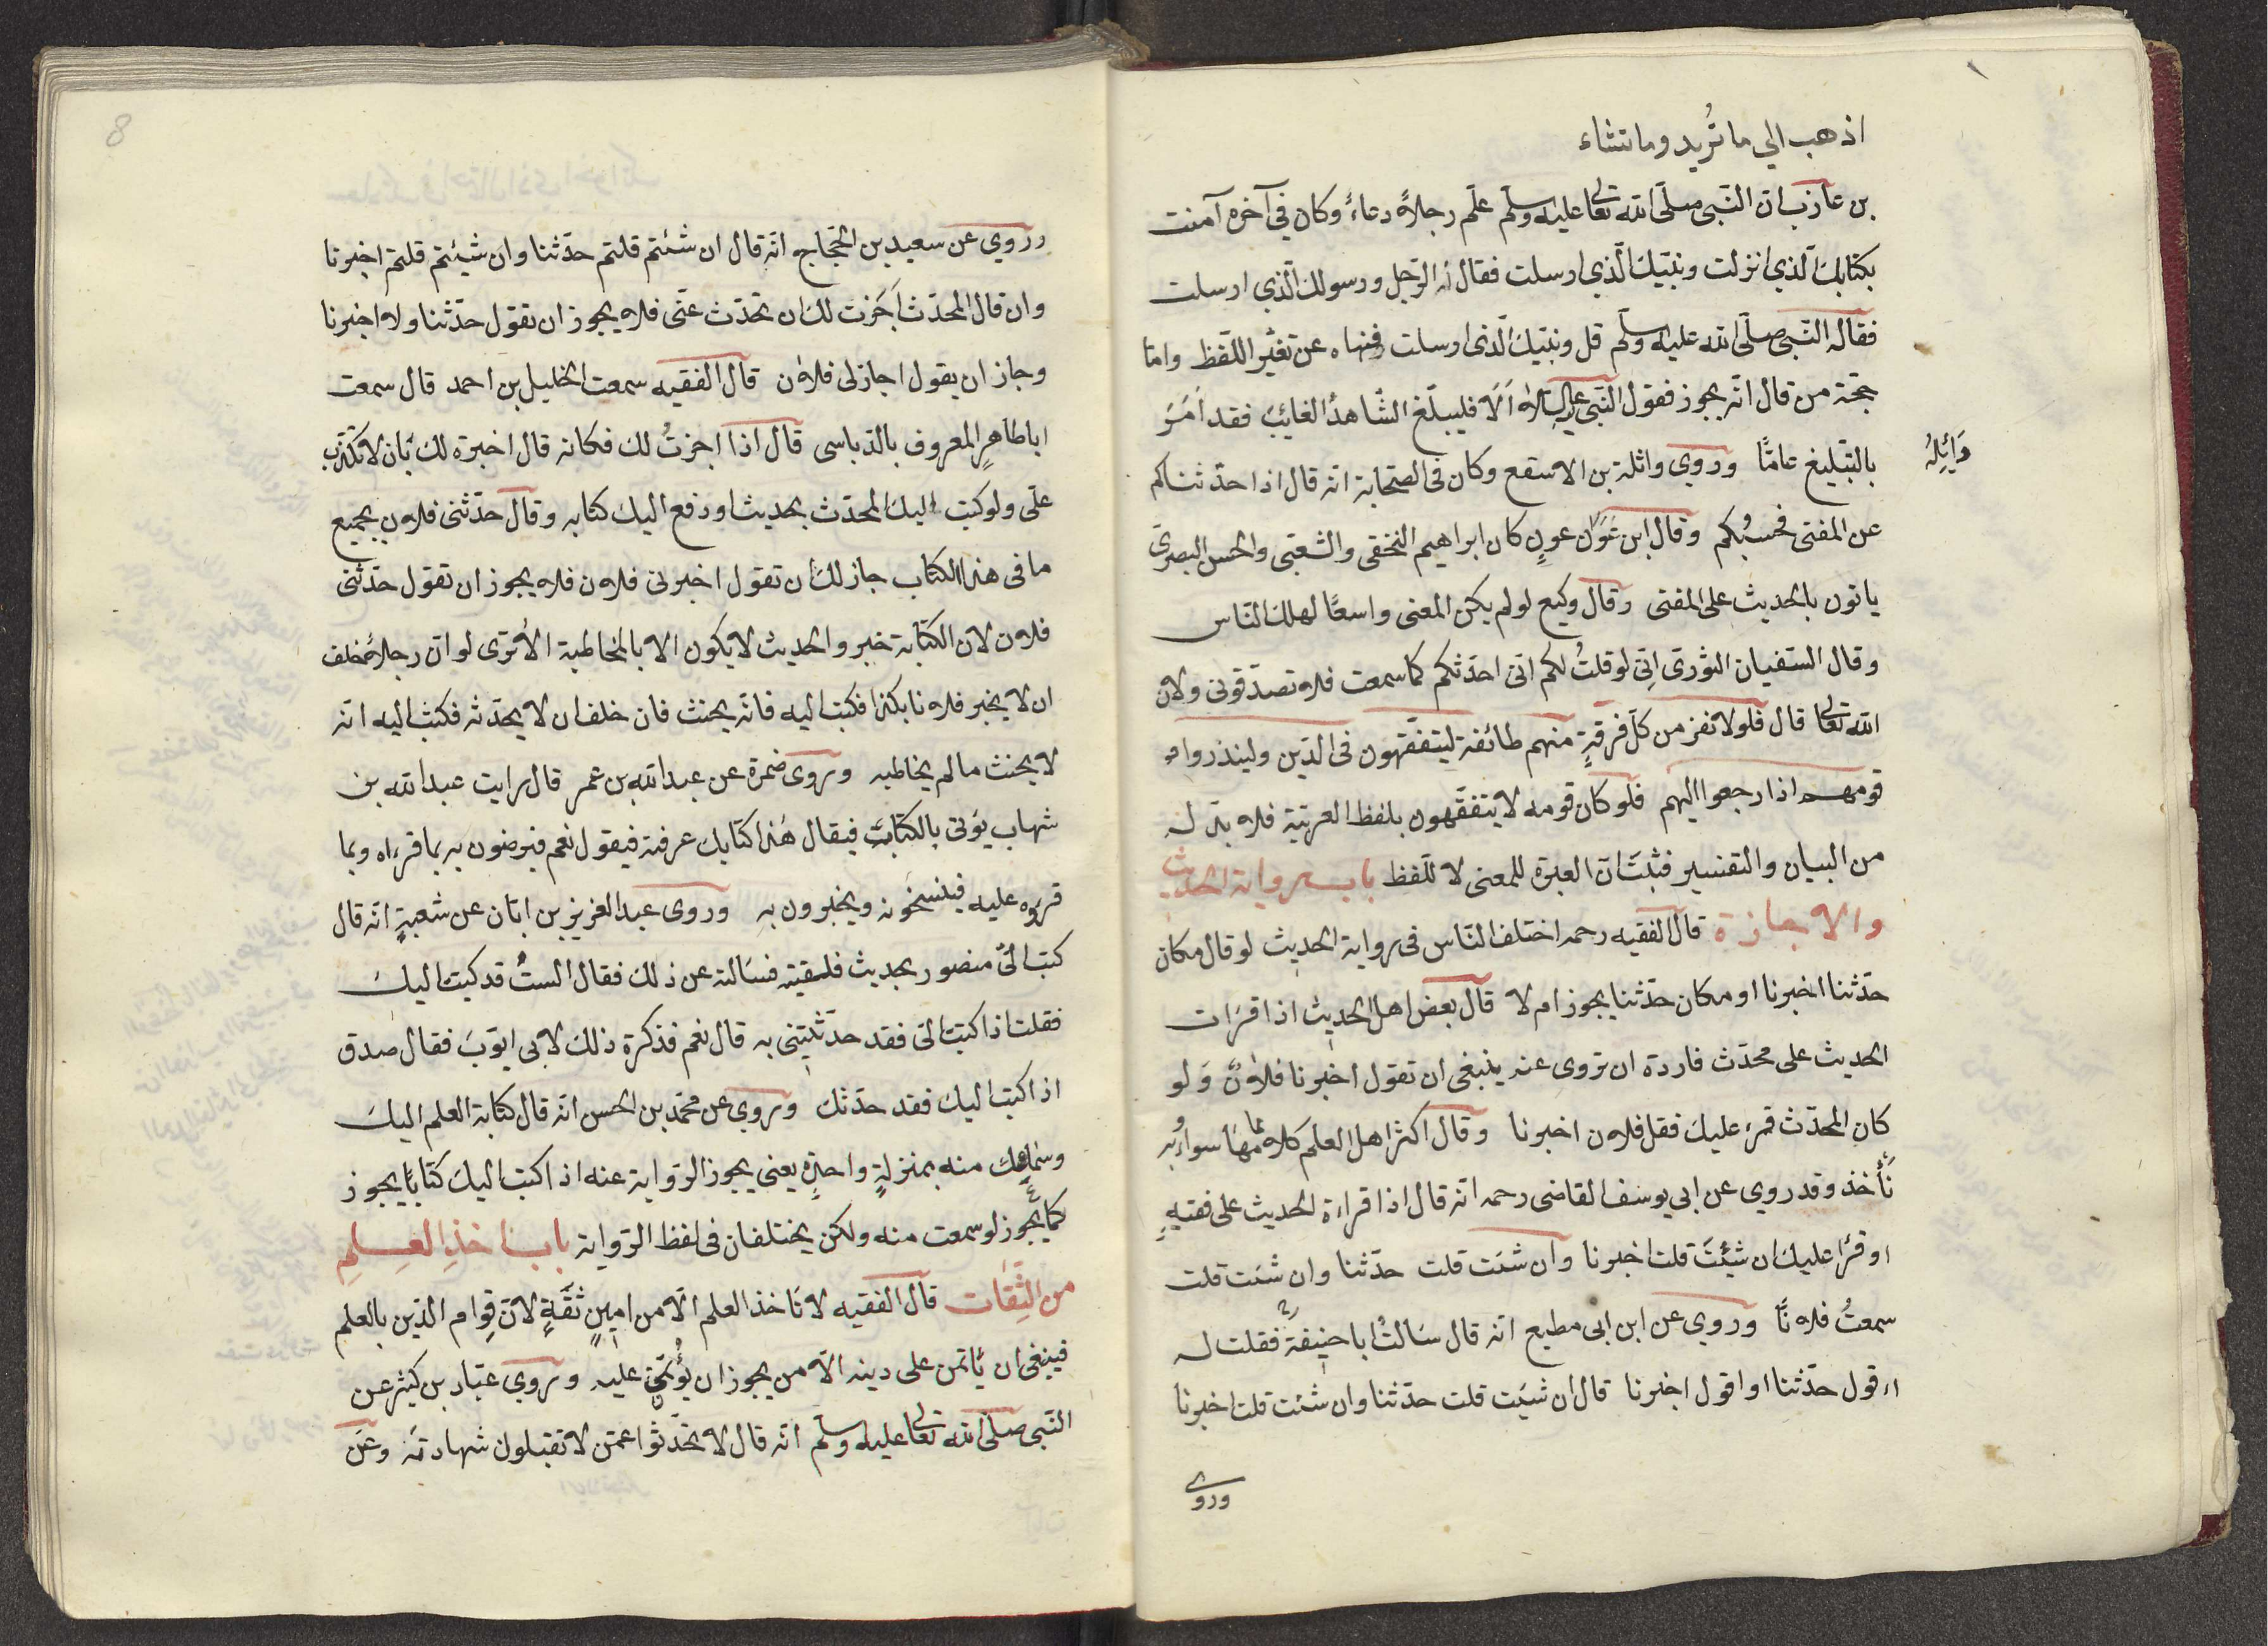 اذهب الي ما تُريد وما تشاء
بن عازب ان النّبى صلّى الله تعالى عليه وسلّم علّم رجلاً دعاءً وكان فى آخره آمنت
بكتابك الّذي انزلت ونبيّك الّذي ارسلت فقال الرّجل ورسولك الّذي ارسلت
فقال له النّبى صلّى الله عليه وسلّم قل ونبيّك الّذى ارسلت فنهاه عن تغيّر اللّفظ وامّا
حجّة من قال انّه يجوز فقول النّبى عليه السّلام اَلَا فليبلّغ الشّاهدُ الغائبَ فقد اَمَرَ
بالتّبليغ عامًّا وروي واثلة بن الاسقع وكان فى الصّحابة انّه قال اذا حدّثناكم
وَائِلِهُ
عن المفتى فحسبُكم وقال ابن عون كان ابراهيم النخقى والشّعبى والحسن البصرىّ
ياتون بالحديث على المفتى وقال وكيع لو لم يكن المعنى واسعًا لهلك النّاس
وقال السّفيان الثورىّ اِنّى لو قلتُ لكم انّى احدّثكم كما سمعت فلا تصدّقونى ولانّ
الله تعالى قال فلولا نفر من كلّ فرقةٍ منهم طائفة ليتفقّهون فى الدّين ولينذروا
قومهم اذا رجعوا اليهم فلو كان قومه لا يتفقّهون بلفظ العربيّة فلا بدّ له
من البيان والتفسير فثبتَ انّ العبرة للمعنى لا للّفظ باب رواية الحديث
والاجازة قال الفقيه رحمه اختلف النّاس فى رواية الحديث لو قال مكان
حدّثنا اخبرنا او مكان حدّثنا يجوز ام لا قال بعض اهل الحديث اذا قرات
الحديث على محدّث فاردة ان تروى عنه ينبغى ان تقول اخبرنا فلانٌ وَلو
كان المحدّث قرء عليك فقل فلان اخبرنا وقال اكثر اهل العلم كلاهما سواء وبه
نأخذ وقد روي عن ابي يوسف القاضى رحمه انّه قال اذا قراءة الحديث على فقيهٍ
او قرُا عليك ان شئتَ قلت اخبرنا وان شئت قلت حدّثنا وان شئت قلت
سمعتُ فلانًا وروي عن ابن ابى مطيع انّه قال سَالتُ ابا حنيفة فقلت له
اءقول حدّثنا او اقول اخبرنا قال ان شيَت قلت حدّثنا وان شئت قلت اخبرنا
وروى
8
وروي عن سعيد بن الحجّاج انّه قال ان شئتم قلتم حدّثنا وان شيئتم قلتم اخبرنا
وان قال المحدّث اَجَزت لك ان تحدّث عنّى فلا يجوز ان تقول حدّثنا ولا اخبرنا
وجاز ان يقول اجازلى فلان قال الفقيه سمعت الخليل بن احمد قال سمعت
اباطاهرٍ المعروف بالدّباسى قال اذا اجزتُ لك فكانه قال اخبرة لك بَان لا تكذب
علّى ولو كتب اليك المحدّث بحديث او دفع اليك كتابه وقال حدّثنى فلان بجميع
ما فى هذا الكتاب جاز لك ان تقول اخبرنى فلان فلا يجوز ان تقول حدّثنى
فلان لان الكتابة خبر والحديث لا يكون الا بالمخاطبة الا ترى لو انّ رجلاً حلف
ان لا يخبر فلانا بكذا فكتب اليه فانّه يحنث فان حلف ان لا يحدّثه فكتب اليه انّه
لا يحنث ما لم يخاطبه وروى ضمرة عن عبدالله بن عمر قال رايت عبدالله بن
شهاب يوتى بالكتاب فيقال هٰذا كتابك عرفته فيقول نعم فيرضون به بما قرءاه وبما
قروه عليه فينسخونه ويخبرون به وروى عبد العزيز بن ابّان عن شعبةٍ انّه قال
كتب الىّ منصور بحديث فلقيته فسَالته عن ذلك فقال الستُ قد كتبت اليك
فقلت اذا كتبت الىّ فقد حدّثتنى به قال نعم فذكرة ذلك لابى ايّوبَ فقال صدق
اذا كتب اليك فقد حدّثك وروي عن محمّد بن الحسن انّه قال كتابة العلم اليكَ
وسماعك منه بمنزلةٍ واحدٍة يعنى يجوز الرّواية عنه اذا كتب اليك كتابًا يجوز
كما يجوز لو سمعت منه ولكن يختلفان فى لفظ الرّواية باب اخذِ العِلمِ
من الثِقات قال الفقيه لا تَاخذ العلم الّا من امينٍ ثقَةٍ لانّ قِوام الدّين بالعلم
فينبغى ان يَاتمن على دينه الّا من يجوز ان يؤتمن عليه وروي عبّاد بن كثير عن
النّبى صلّى الله تعالى عليه وسلّم انّه قال لا تحدّثوا عمّن لا تقبلون شهادته وعن